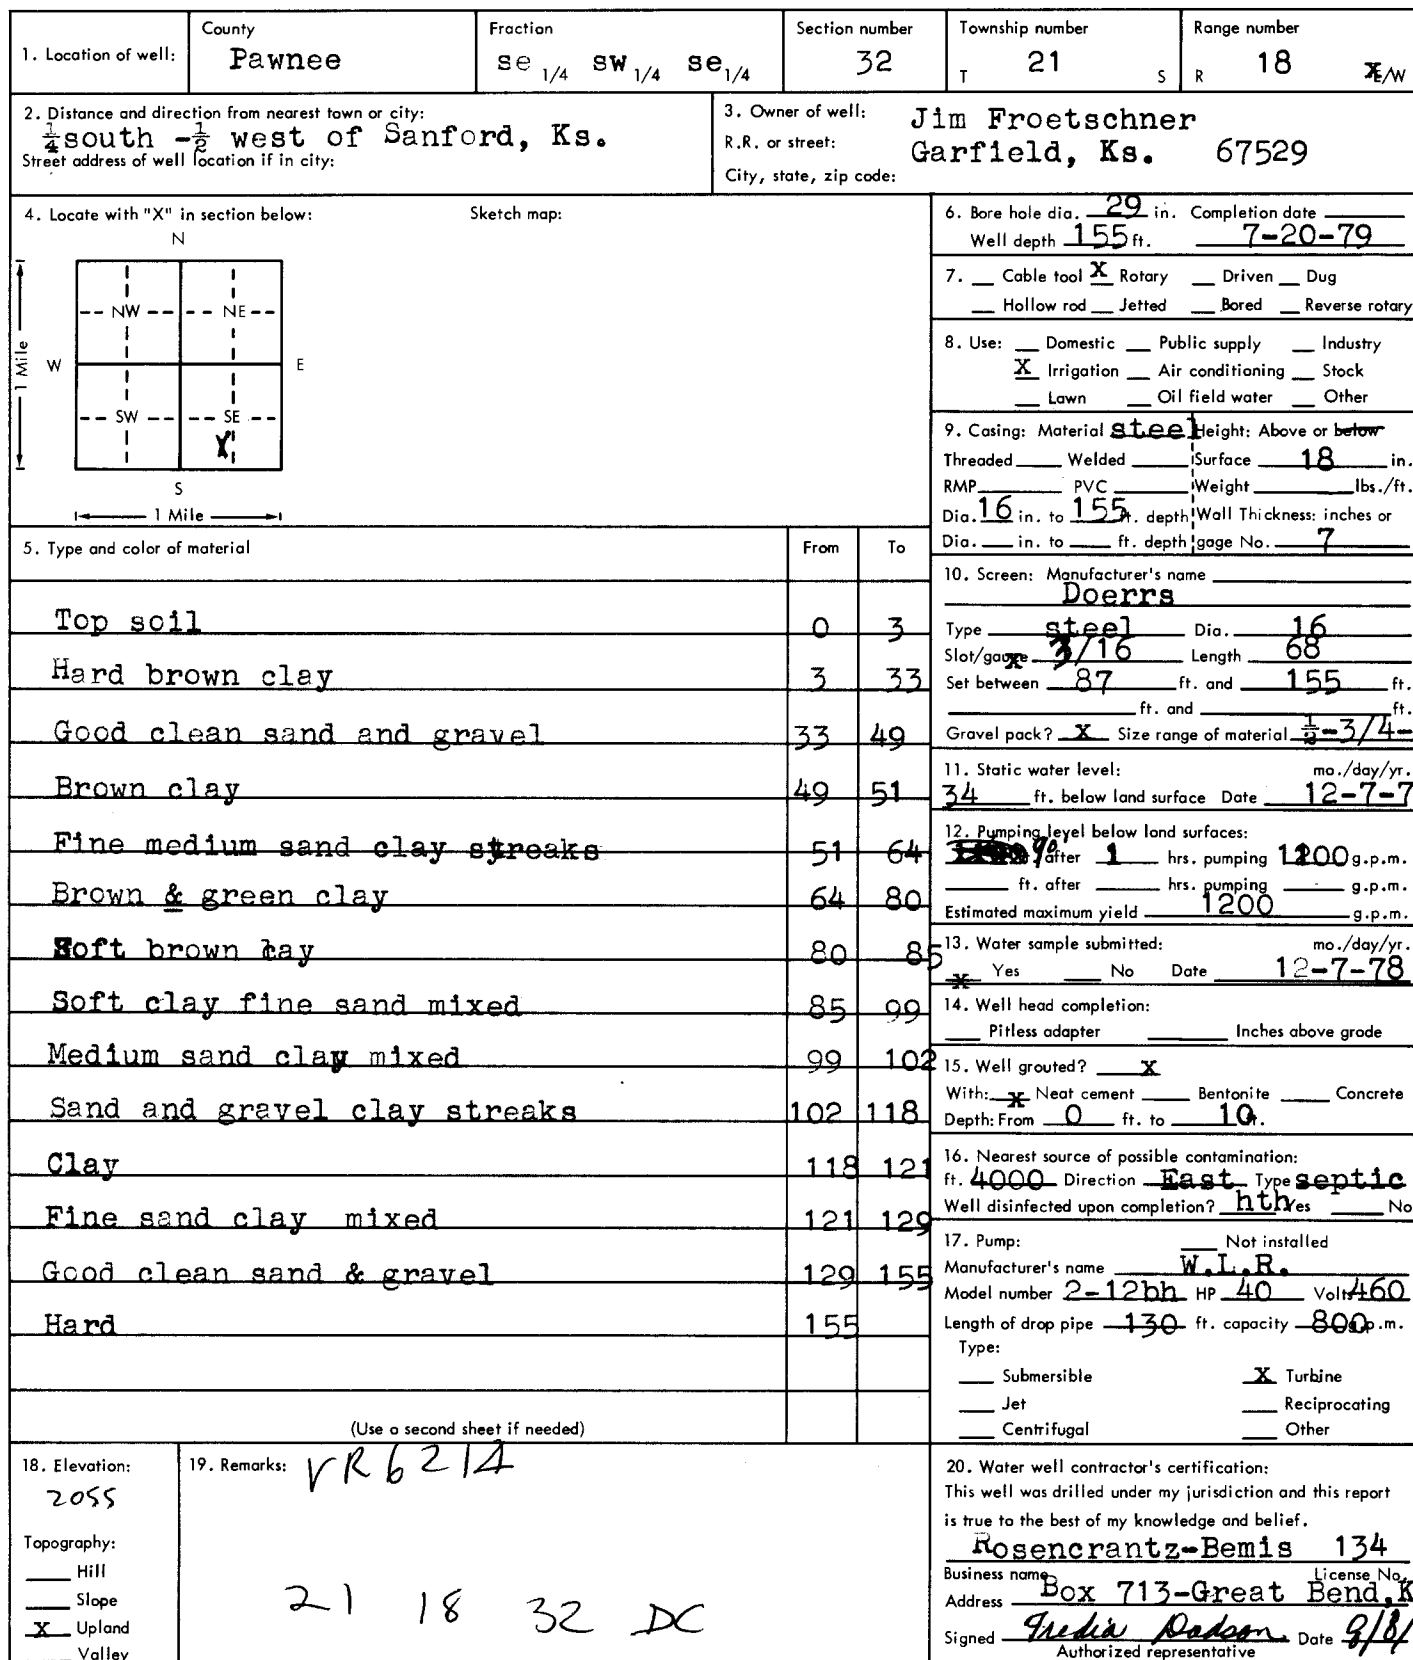 1. Location of well: County Pawnee Fraction se 1/4 sw 1/4 se 1/4 Section number 32 Township number T 21 S Range number R 18 E/W
2. Distance and direction from nearest town or city:
¼south -½ west of Sanford, Ks.
Street address of well location if in city:
3. Owner of well: Jim Froetschner
R.R. or street: Garfield, Ks. 67529
City, state, zip code:
4. Locate with "X" in section below: Sketch map:
N
NW NE
W E
1 Mile
SW SE
X
S
1 Mile
5. Type and color of material From To
Top soil 0 3
Hard brown clay 3 33
Good clean sand and gravel 33 49
Brown clay 49 51
Fine medium sand clay streaks 51 64
Brown & green clay 64 80
Soft brown cay 80 85
Soft clay fine sand mixed 85 99
Medium sand clay mixed 99 102
Sand and gravel clay streaks 102 118
Clay 118 121
Fine sand clay mixed 121 129
Good clean sand & gravel 129 155
Hard 155
(Use a second sheet if needed)
6. Bore hole dia. 29 in. Completion date
Well depth 155 ft. 7-20-79
7. Cable tool X Rotary Driven Dug
Hollow rod Jetted Bored Reverse rotary
8. Use: Domestic Public supply Industry
X Irrigation Air conditioning Stock
Lawn Oil field water Other
9. Casing: Material steel Height: Above or below
Threaded Welded Surface 18 in.
RMP PVC Weight lbs./ft.
Dia. 16 in. to 155 ft. depth Wall Thickness: inches or
Dia. in. to ft. depth gage No. 7
10. Screen: Manufacturer's name
Doerrs
Type steel Dia. 16
Slot/gauze x 3/16 Length 68
Set between 87 ft. and 155 ft.
ft. and ft.
Gravel pack? X Size range of material ½-3/4-
11. Static water level: mo./day/yr.
34 ft. below land surface Date 12-7-7
12. Pumping level below land surfaces:
90' after 1 hrs. pumping 1200 g.p.m.
ft. after hrs. pumping g.p.m.
Estimated maximum yield 1200 g.p.m.
13. Water sample submitted: mo./day/yr.
x Yes No Date 12-7-78
14. Well head completion:
Pitless adapter Inches above grade
15. Well grouted? X
With: x Neat cement Bentonite Concrete
Depth: From 0 ft. to 10 ft.
16. Nearest source of possible contamination:
ft. 4000 Direction East Type septic
Well disinfected upon completion? hth Yes No
17. Pump: Not installed
Manufacturer's name W.L.R.
Model number 2-12bh HP 40 Volts 460
Length of drop pipe 130 ft. capacity 800 g.p.m.
Type:
Submersible X Turbine
Jet Reciprocating
Centrifugal Other
18. Elevation:
2055
Topography:
Hill
Slope
X Upland
Valley
19. Remarks: VR6214
21 18 32 DC
20. Water well contractor's certification:
This well was drilled under my jurisdiction and this report
is true to the best of my knowledge and belief.
Rosencrantz-Bemis 134
Business name License No.
Address Box 713-Great Bend, K
Signed Fredia Dodson Date 8/8/
Authorized representative